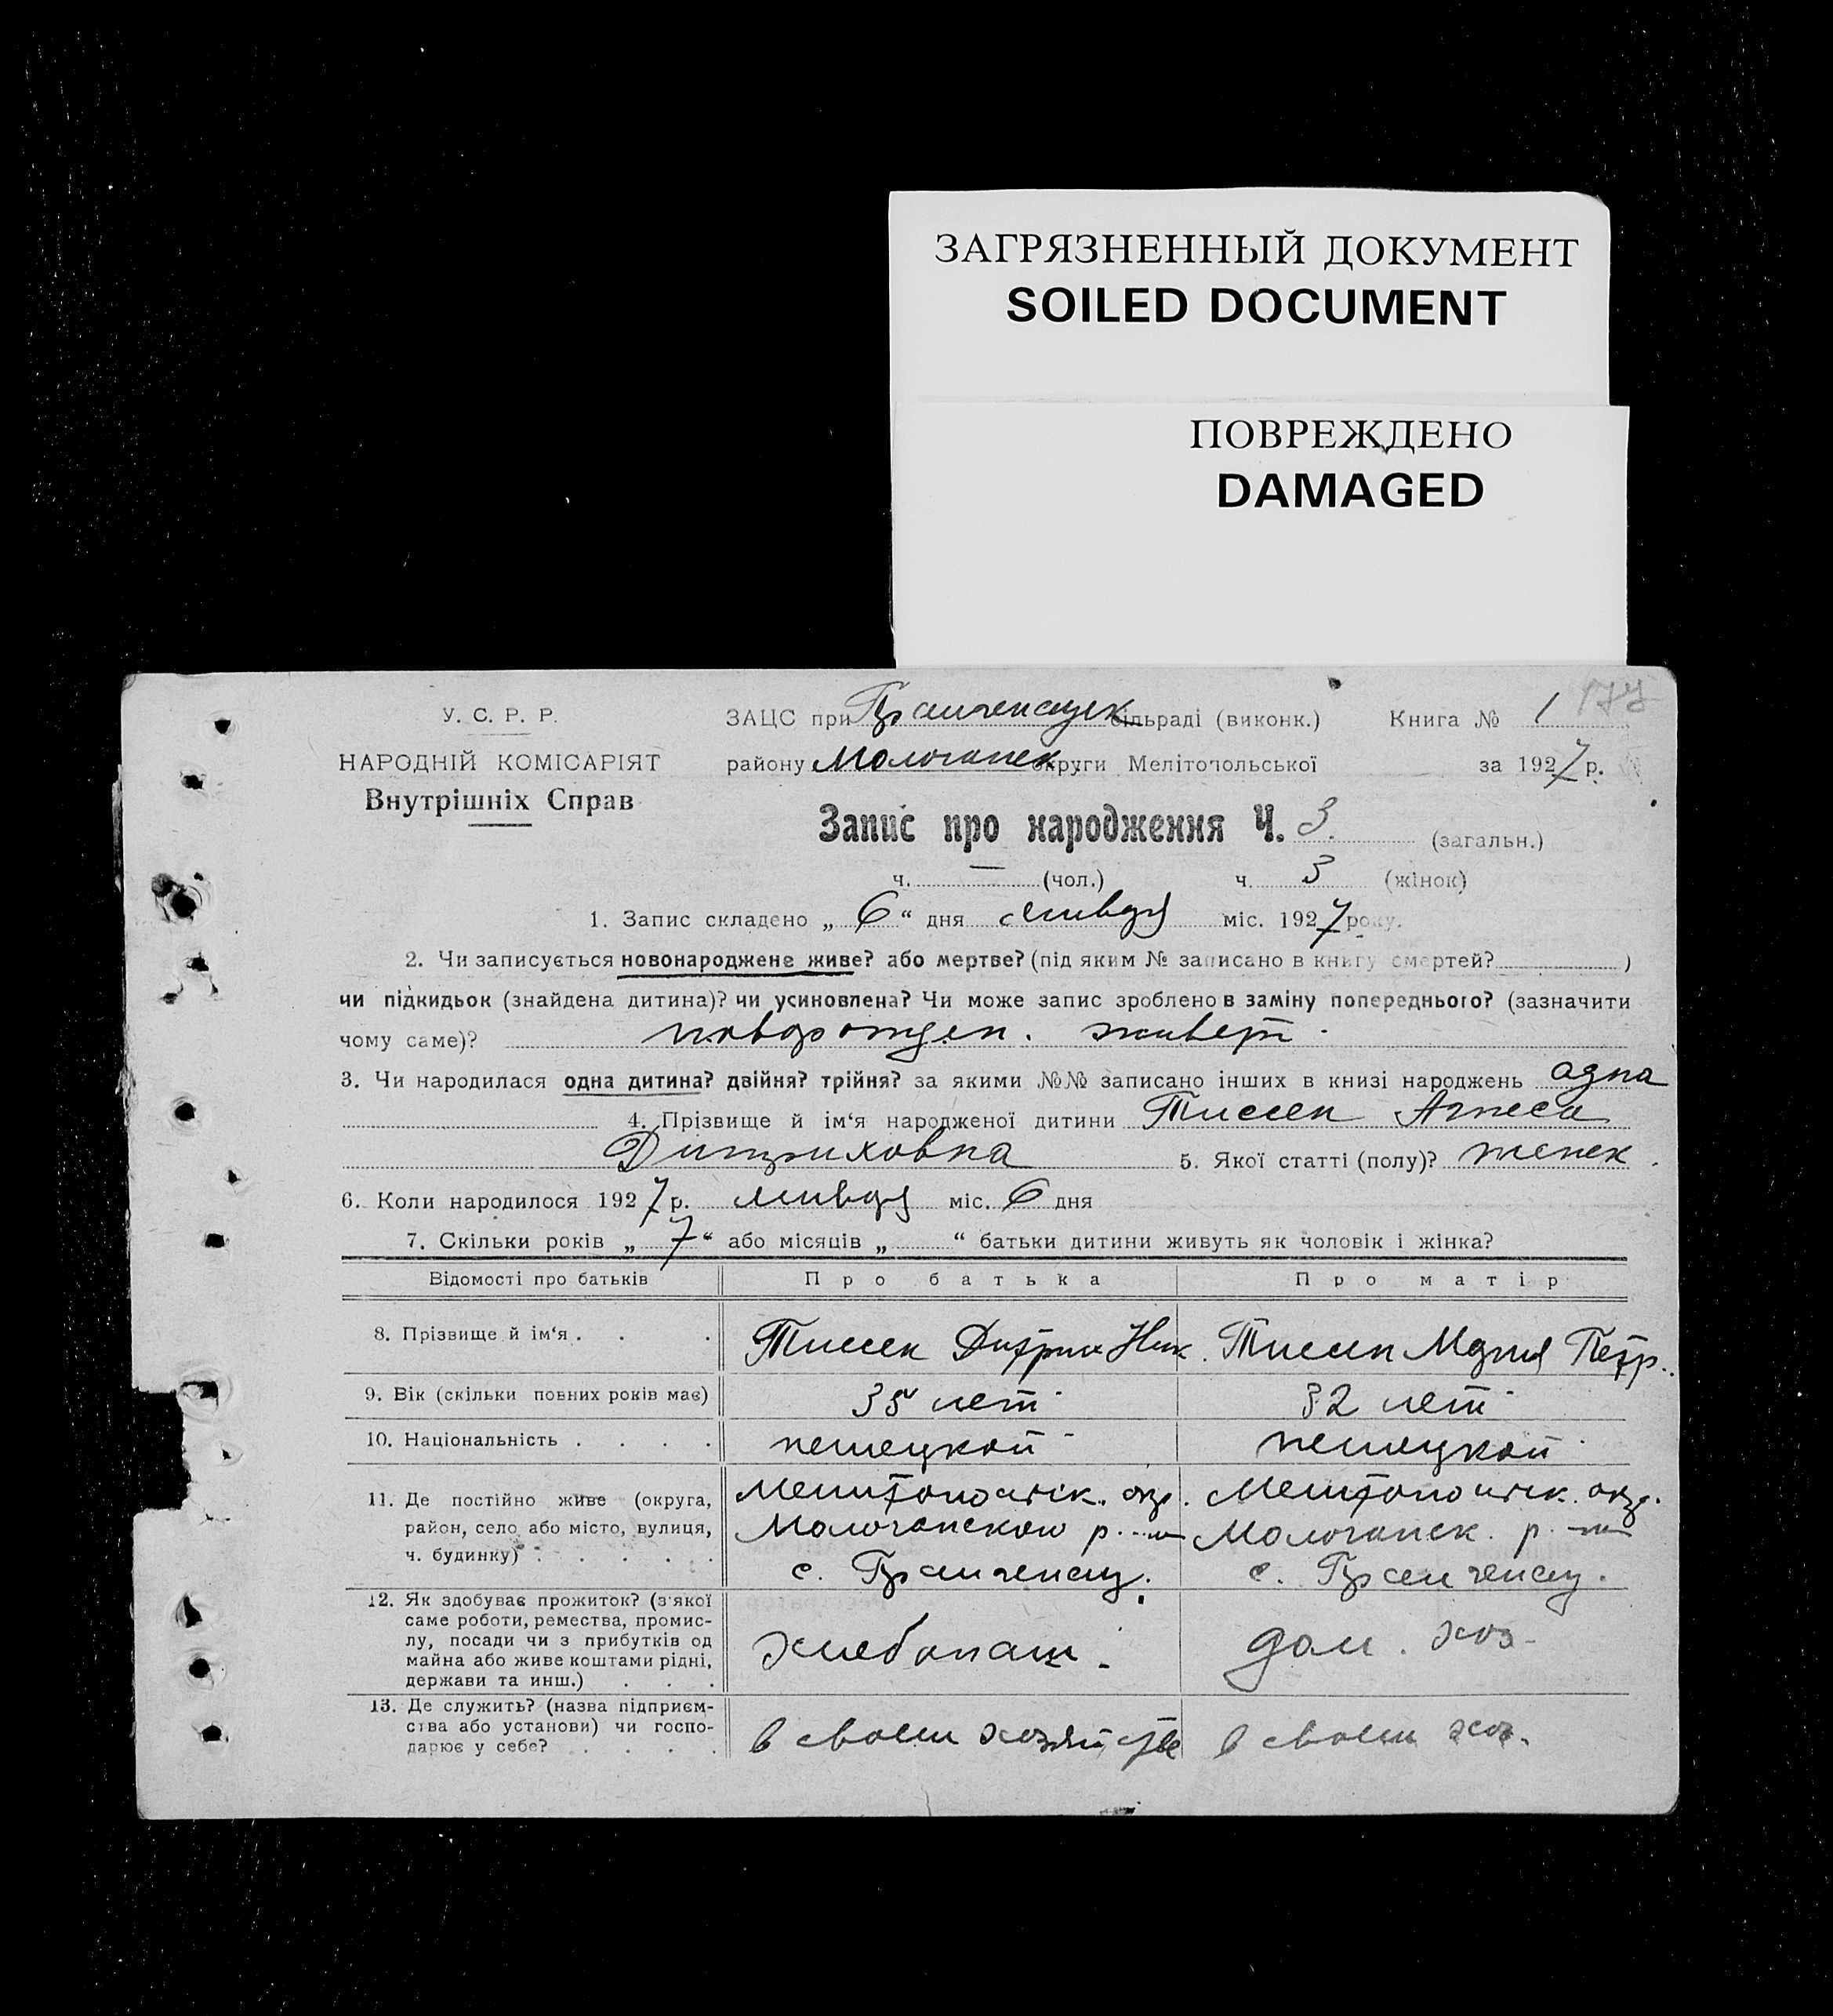 ЗАГРЯЗНЕННЫЙ ДОКУМЕНТ
SOILED DOCUMENT
ПОВРЕЖДЕНО
DAMAGED
У. С. Р. Р.
НАРОДНІЙ КОМІСАРІЯТ
Внутрішніх Справ
ЗАЦС при сільраді (виконк.) Книга № 1
району Молочанск округи Мелітопольської за 1927 р.
Запис про народження Ч. 3. (загальн.)
ч. — (чол.) ч. 3 (жінок)
1. Запис складено „ 6 “ дня января міс. 1927 року.
2. Чи записується новонароджене живе? або мертве? (під яким № записано в книгу смертей? )
чи підкидьок (знайдена дитина)? чи усиновлена? Чи може запис зроблено в заміну попереднього? (зазначити
чому саме)? новорожден. живет
3. Чи народилася одна дитина? двійня? трійня? за якими №№ записано інших в книзі народжень одна
4. Прізвище й ім‘я народженої дитини Тиссен Агнеса
Дитриховна 5. Якої статті (полу)? женск.
6. Коли народилося 1927 р. января міс. 6 дня
7. Скільки років „ 7 “ або місяців „ “ батьки дитини живуть як чоловік і жінка?
Відомості про батьків Про батька Про матір
8. Прізвище й ім‘я . . . Тиссен Дитрих Ник. Тиссен Мария Петр.
9. Вік (скільки повних років має) 35 лет 32 лет
10. Національність . . . . немецкой немецкой
11. Де постійно живе (округа, Мелитопольск. окр. Мелитопольск. окр.
район, село або місто, вулиця, Молочанского р. Молочанск. р.
ч. будинку) . . . . . с. с.
12. Як здобуває прожиток? (з'якої
саме роботи, ремества, промис-
лу, посади чи з прибутків од хлебопаш. дом. хоз.
майна або живе коштами рідні,
держави та инш.) . . .
13. Де служить? (назва підприєм-
ства або установи) чи госпо- в своем хозяйстве в своем хоз.
дарює у себе? . . . .